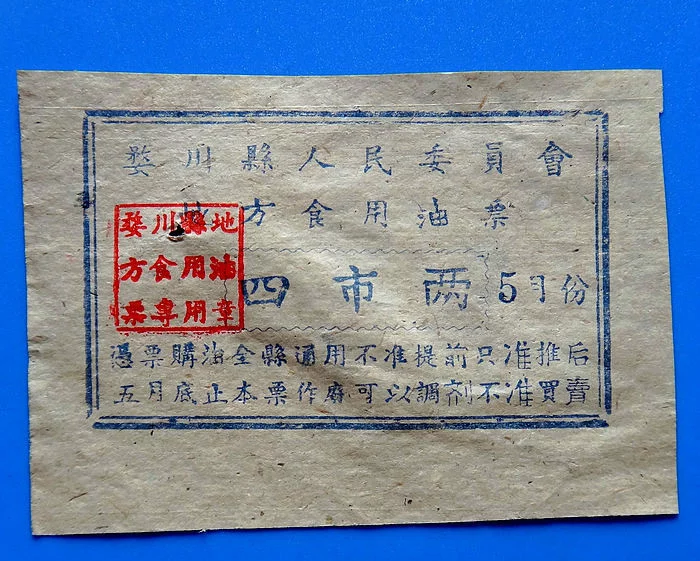 婺川縣人民委員會
地方食用油票
四市兩 5月份
憑票購油全縣通用不准提前只准推后
五月底止本票作廢可以調剂不准買賣
婺川縣地
方食用油
票專用章